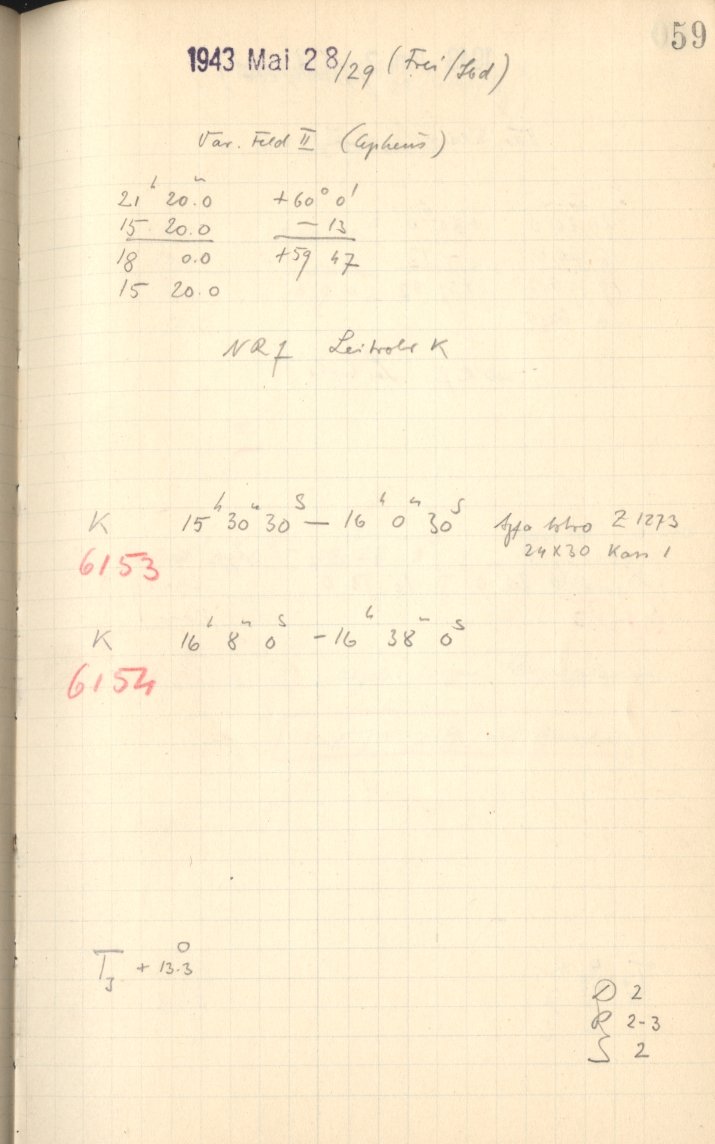 59
1943 Mai 28/29 (Frei/Sbd)
Var. Feld II (Cepheus)
21ʰ 20.0ᵐ +60° 0'
15 20.0 — 13
18 0.0 +59 47
15 20.0
NR 7 Leitrohr K
K 15ʰ 30ᵐ 30ˢ — 16ʰ 0ᵐ 30ˢ Agfa Astro Z 1273
6153 24x30 Kass 1
K 16ʰ 8ᵐ 0ˢ - 16ʰ 38ᵐ 0ˢ
6154
T + 13.3°
D 2
R 2-3
S 2